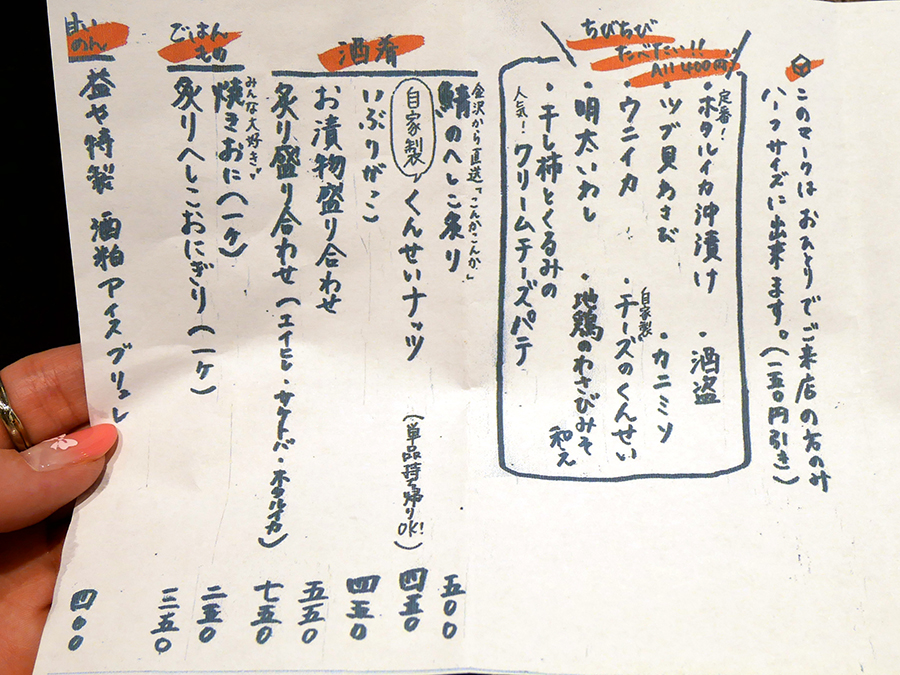 このマークはおひとりでご来店の方のみ
ハーフサイズに出来ます。(一五〇円引き)
ちびちび
たべたい!!
All 400円
定番!
・ホタルイカ沖漬け ・酒盗
・ツブ貝わさび ・カニミソ
・ウニイカ ・自家製チーズのくんせい
・明太いわし ・地鶏のわさびみそ和え
・干し柿とくるみの
人気!クリームチーズパテ
酒肴
金沢から直送「こんかこんか」
鯖のへしこ炙り 五〇〇
自家製 くんせいナッツ (単品持ち帰りOK!) 四五〇
いぶりがっこ 四五〇
お漬物盛り合わせ 五五〇
炙り盛り合わせ(エイヒレ・サケトバ・ホタルイカ) 七五〇
ごはん
もの
みんな大好き
焼きおに(一ケ) 二五〇
炙りへしこおにぎり(一ケ) 三五〇
のん
益や特製 酒粕アイスブリュレ 四〇〇